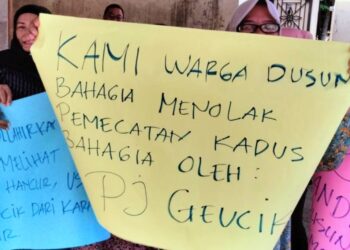 KAMI WARGA DUSUN
BAHAGIA MENOLAK
PEMECATAN KADUS
BAHAGIA OLEH :
PJ GEUCIK
MELIHAT
HANCUR, US
CIK DARI KARA